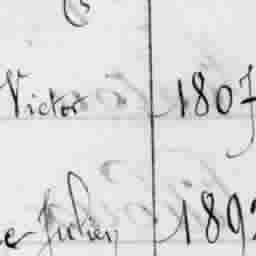 Victor 1807
e Julien 189